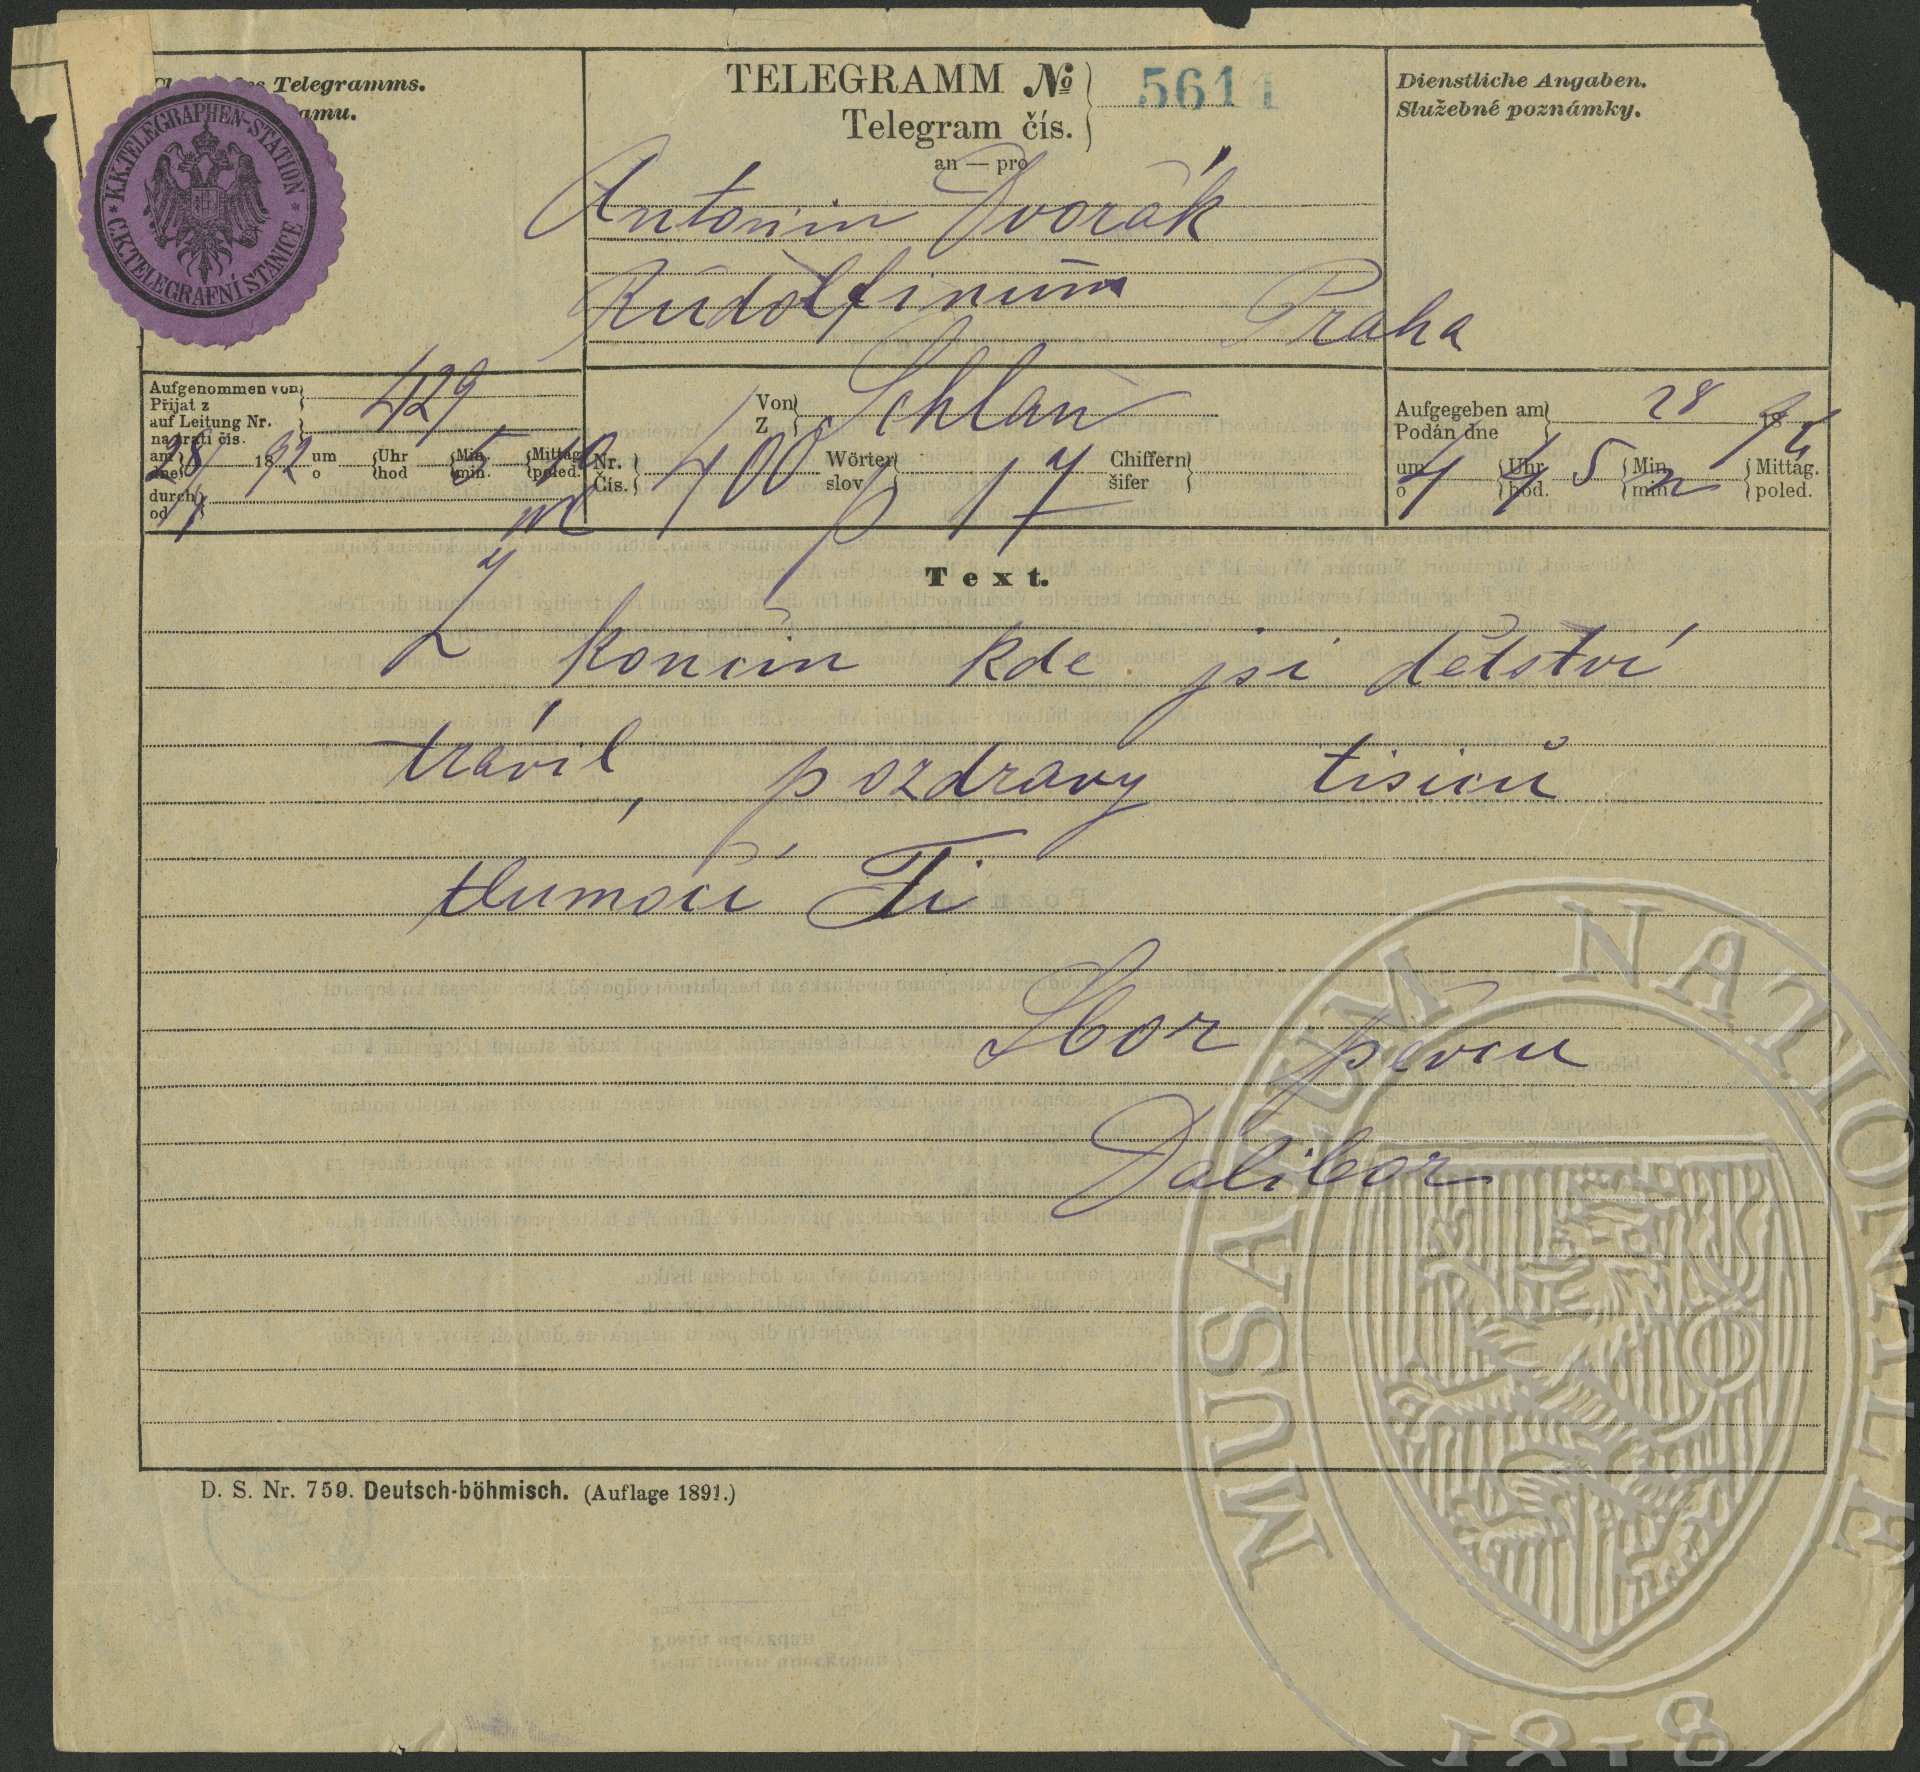 des Telegramms.
TELEGRAMM № 5611
Telegram čís.
an — pro
Dienstliche Angaben.
Služebné poznámky.
K.K.TELEGRAPHEN-STATION
C.K.TELEGRAFNÍ STANICE
Antonín Dvořák
Rudolfinum Praha
Aufgenommen von
Přijat z
auf Leitung Nr.
na trati čís.
429
am
dne
28/ 1892 um
o
Uhr
hod
Min.
min.
Mittag
poled.
durch
od
Von
Z
Schlan
Nr.
Čís.
400
Wörter
slov
17
Chiffern
šifer
Aufgegeben am
Podán dne
28 1892
um
o
4
Uhr
hod.
45
Min
min
Mittag.
poled.
Text.
Z končin kde jsi dětství
trávil, pozdravy tisiců
tlumočí Ti
Sbor pěvců
Dalibor
D. S. Nr. 759. Deutsch-böhmisch. (Auflage 1891.)
MUSAEUM NATIONALE
1818